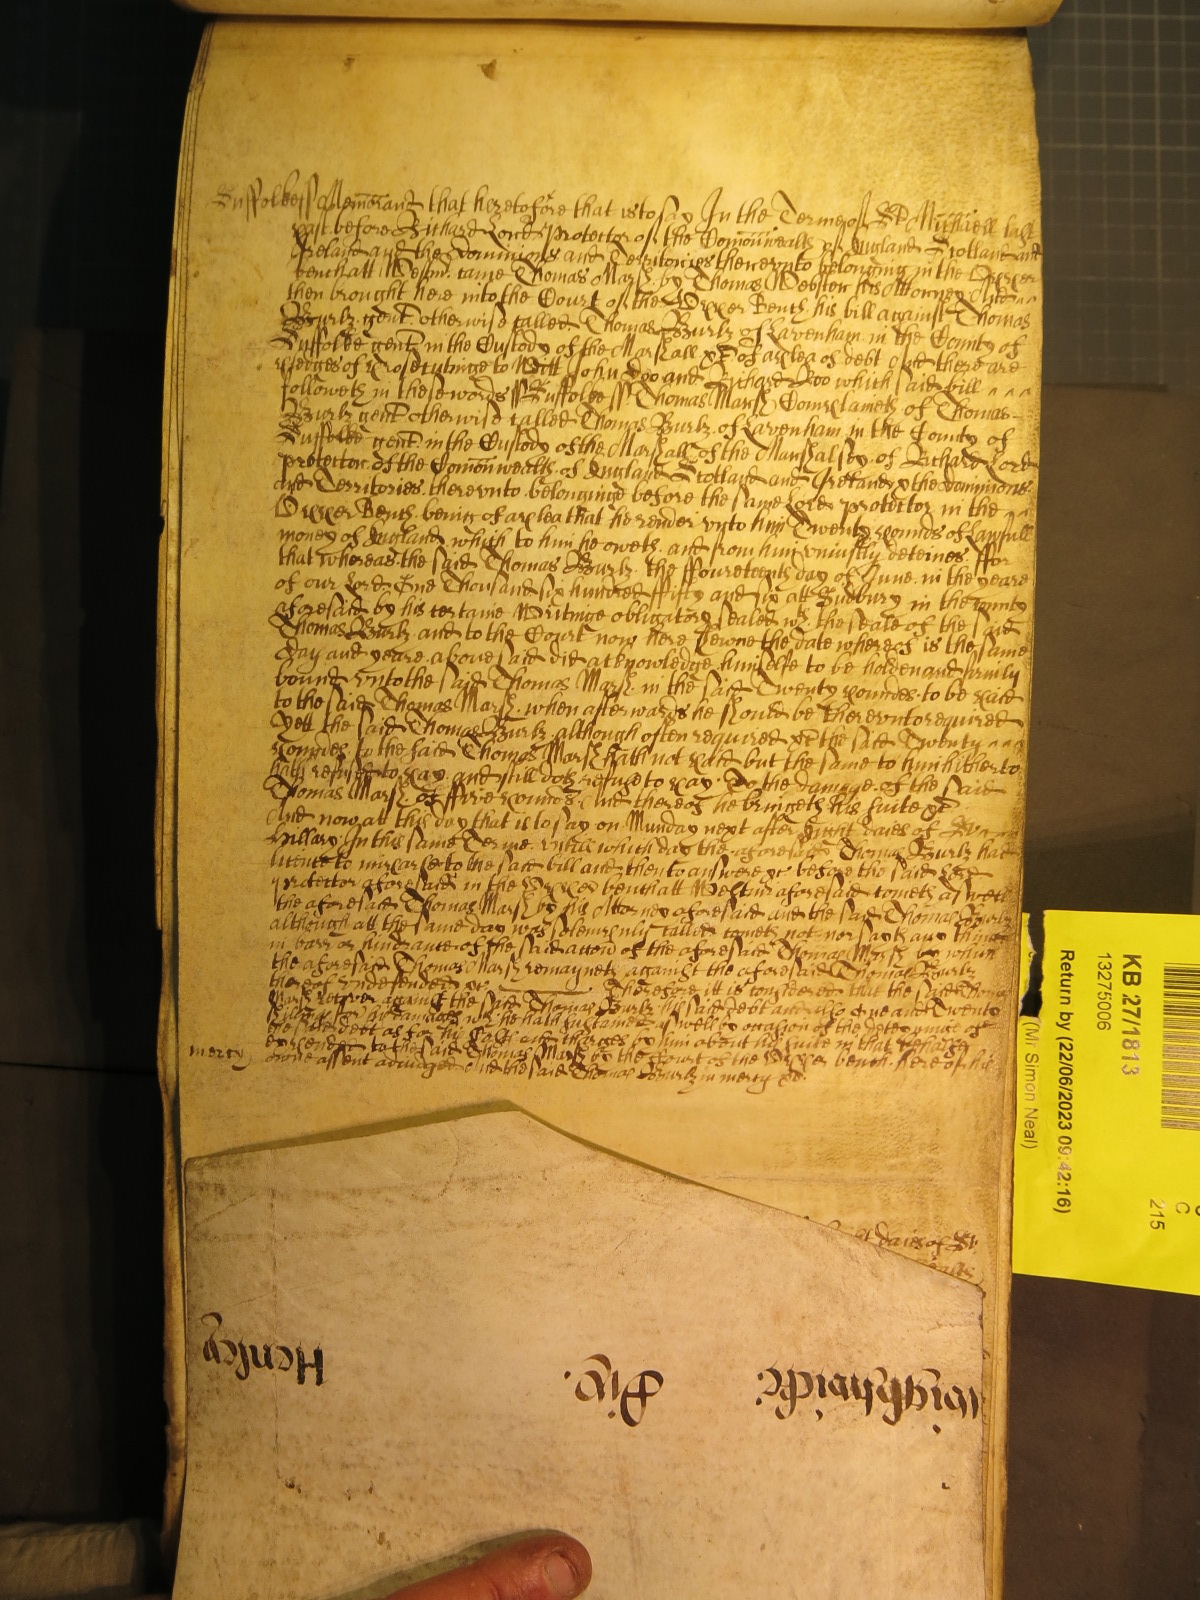 Suffolke ss Memorand that heretofore that is to say In the Terme of St Michaell last
past before Richard Lord Protector of the Comonwealth of England Scotland and
Ireland and the Dominions and Territories therevnto belonging in the Vpper
bench att Westm. came Thomas Marsh by Thomas Webster his Attorney And
then brought here into the Court of the Vpper Bench his bill against Thomas
Burlz gent. otherwise called Thomas Burlz of Lavenham in the County of
Suffolke gent. in the Custody of the Marshall &c of a plea of debt And there are
pledges of prosecutinge to Witt John Doo and Richard Roo which said bill
followeth in these words ss Suffolke ss Thomas Marsh Complaineth of Thomas
Burlz gent otherwise called Thomas Burlz of Lavenham in the County of
Suffolke gent. in the Custody of the Marshall of the Marshalsey of Richard Lord
protector of the Comonwealth of England Scotland and Ireland & the dominions
and Territories therevnto belonginge before the same Lord protector in the
Vpper Bench beinge of a plea that he render vnto him Twenty pounds of lawfull
money of England which to him he oweth and from him vniustly deteines ffor
that whereas the said Thomas Burlz the ffoureteenth day of June in the yeare
of our Lord One Thousand six hundred ffifty and six att Sudbury in the county
aforesaid by his certaine Writinge obligatory sealed wth the seale of the said
Thomas Burlz and to the Court now here shewne the date whereof is the same
day and yeare abovesaid did acknowledge himselfe to be holden and firmly
bound vnto the said Thomas Marsh in the said Twenty poundes to be paid
to the said Thomas Marsh when afterwards he should be therevnto required
Yett the said Thomas Burlz although often required &c the said Twenty
pounds to the said Thomas Marsh hath not paid but the same to him hitherto
hath refused to pay and still doth refuse to pay To the damage of the said
Thomas Marsh of ffive pounds And thereof he bringeth his suite &c
And now att this day that is to say on Munday next after Eight daies of St
Hillary In this same Terme vntill which day the aforesaid Thomas Burlz had
licence to imparle to the said bill and then to answere &c before the said Lord
Protector aforesaid in the Vpper bench att Westm aforesaid cometh as well
the aforesaid Thomas Marsh by his Attorney aforesaid and the said Thomas Burlz
although att the same day was solemnly called cometh not nor sayth any thinge
in barr or hindrance of the said accon of the aforesaid Thomas Marsh by which
the aforesaid Thomas Marsh remayneth against the aforesaid Thomas Burlz
thereof vndefended &c Therefore itt is considered that the said Thomas
Marsh recover against the said Thomas Burlz his said debt and also One and Twenty
shillings for his damages wch he hath sustained aswell by occasion of the deteyninge of
the said debt as for his Costs and charges by him about his suite in that behalfe
expended to the said Thomas Marsh by the Court of the Vpper bench here of his
mercy owne assent adiudged And the said Thomas Burlz in mercy &c.
daies of St
Henley
Div.
Wightwicke.
KB 27/1813
13275006
Return by (22/06/2023 09:42:16)
(Mr Simon Neal)
C
215